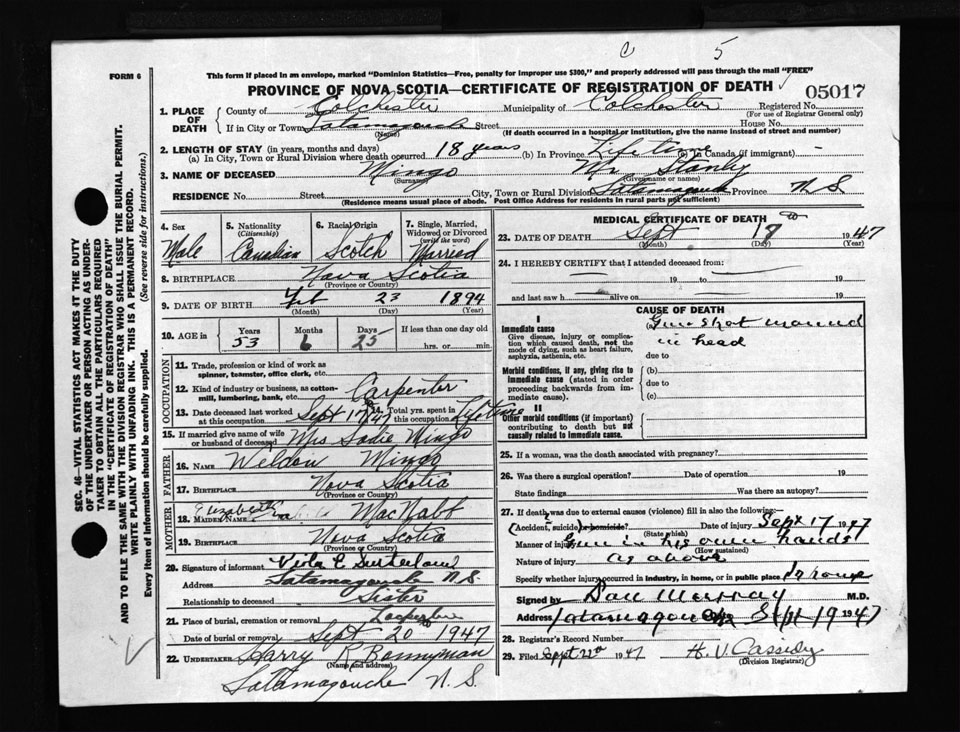 C 5
FORM 6
This form if placed in an envelope, marked "Dominion Statistics—Free, penalty for improper use $300," and properly addressed will pass through the mail "FREE"
PROVINCE OF NOVA SCOTIA—CERTIFICATE OF REGISTRATION OF DEATH
05017
1. PLACE OF DEATH
County of Colchester Municipality of Colchester Registered No.
(For use of Registrar General only)
If in City or Town Tatamagouche Street House No.
(Name) (If death occurred in a hospital or institution, give the name instead of street and number)
2. LENGTH OF STAY (in years, months and days)
(a) In City, Town or Rural Division where death occurred 18 years (b) In Province Life time (c) In Canada (if immigrant) -
3. NAME OF DECEASED Mingo Mr Stanley
(Surname) (Given name or names)
RESIDENCE No. Street City, Town or Rural Division Tatamagouche Province N.S.
(Residence means usual place of abode. Post Office Address for residents in rural parts not sufficient)
4. Sex
Male
5. Nationality
(Citizenship)
Canadian
6. Racial Origin
Scotch
7. Single, Married, Widowed or Divorced
(write the word)
Married
8. BIRTHPLACE Nova Scotia
(Province or Country)
9. DATE OF BIRTH Feb 23 1894
(Month) (Day) (Year)
10. AGE in
Years Months Days If less than one day old
53 6 25 hrs. or min.
OCCUPATION
11. Trade, profession or kind of work as
spinner, teamster, office clerk, etc.
12. Kind of industry or business, as cotton-
mill, lumbering, bank, etc. Carpenter
13. Date deceased last worked
at this occupation Sept 17/47
14. Total yrs. spent in
this occupation Lifetime
15. If married give name of wife
or husband of deceased Mrs Sadie Mingo
FATHER
16. NAME Weldon Mingo
17. BIRTHPLACE Nova Scotia
(Province or Country)
MOTHER
18. MAIDEN NAME Elizabeth MacNabb
19. BIRTHPLACE Nova Scotia
(Province or Country)
20. Signature of informant Viola E Sutherland
Address Tatamagouche N.S.
Relationship to deceased Sister
21. Place of burial, cremation or removal
Date of burial or removal Sept 20 1947
22. UNDERTAKER Harry R Bonnyman
(Name and address)
Tatamagouche N.S.
MEDICAL CERTIFICATE OF DEATH
23. DATE OF DEATH Sept 18 1947
(Month) (Day) (Year)
24. I HEREBY CERTIFY that I attended deceased from:
19 to 19
and last saw h alive on 19
CAUSE OF DEATH
I
Immediate cause
Give disease, injury or complica-
tion which caused death, not the
mode of dying, such as heart failure,
asphyxia, asthenia, etc.
(a) Gun shot wound
in head
due to
Morbid conditions, if any, giving rise to
immediate cause (stated in order
proceeding backwards from im-
mediate cause).
(b)
due to
(c)
II
Other morbid conditions (if important)
contributing to death but not
causally related to immediate cause.
25. If a woman, was the death associated with pregnancy?
26. Was there a surgical operation? Date of operation 19
State findings Was there an autopsy?
27. If death was due to external causes (violence) fill in also the following:
(Accident, suicide or homicide? Date of injury Sept 17 1947
(State which)
Manner of injury Gun in his own hands
(How sustained)
Nature of injury as above
Specify whether injury occurred in industry, in home, or in public place In home
Signed by Dan Murray M.D.
Address Tatamagouche Sept 19 1947
28. Registrar's Record Number
29. Filed Sept 22nd 1947 H. V. Cassidy
(Division Registrar)
SEC. 46—VITAL STATISTICS ACT MAKES IT THE DUTY
OF THE UNDERTAKER OR PERSON ACTING AS UNDER-
TAKER TO OBTAIN ALL THE PARTICULARS REQUIRED
IN THE "CERTIFICATE OF REGISTRATION OF DEATH"
AND TO FILE THE SAME WITH THE DIVISION REGISTRAR WHO SHALL ISSUE THE BURIAL PERMIT.
WRITE PLAINLY WITH UNFADING INK. THIS IS A PERMANENT RECORD.
Every item of information should be carefully supplied. (See reverse side for instructions.)